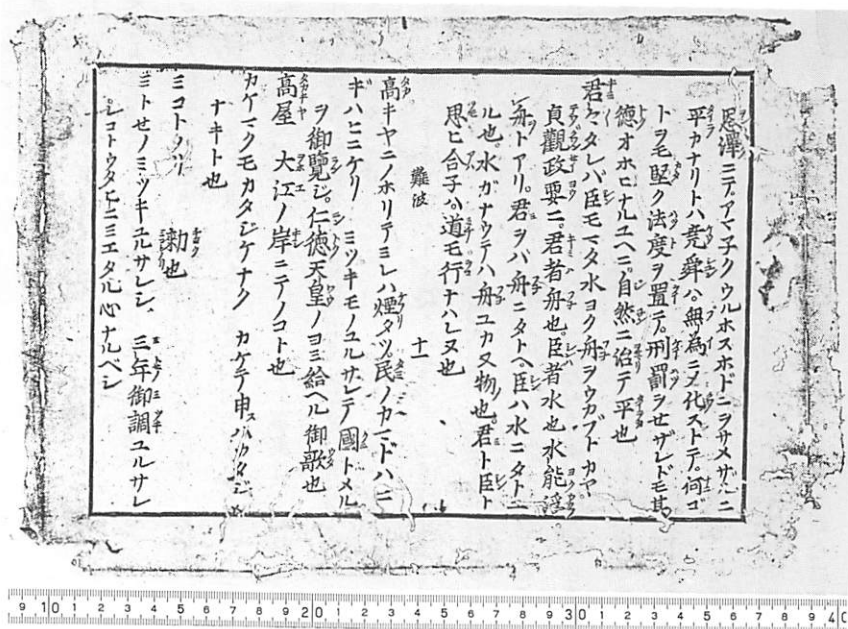 恩澤ニテアマ子クウルホスホドニヲサメザルニ
平カナリトハ堯舜ハ無為ニメ化ストテ。何ゴ
トヲモ堅ク法度ヲ置テ。刑罰ヲセザレドモ其
徳オホヒナルユヘニ。自然ニ治テ平也
君々タレバ臣モマタ水ヨク舟ヲウカブトカヤ
貞觀政要ニ。君者舟也。臣者水也水能浮
舟トアリ。君ヲバ舟ニタトヘ。臣ハ水ニタトエ
ル也。水ガナウテハ舟ユカヌ物也。君ト臣ト
思ヒ合子ハ。道モ行ナハレヌ也
難波 十一
高キヤニノホリテミレハ煙タツ。民ノカマドハニ
ギハヒニケリ ミツキモノユルサレテ國トメル
ヲ御覽ジ。仁徳天皇ノヨミ給ヘル御歌也
高屋 大江ノ岸ニテノコト也
カケマクモカタジケナク カケテ申スハカタジケ
ナキト也
ミコトノリ 勅也
ミトせノミツキユルサレシ 三年御調ユルサレ
シコトウタヒニミエタル心ナルベシ